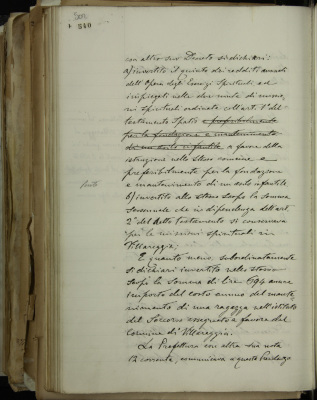 340
con altro suo Decreto si dichiari:
a) investito il quinto dei redditi annuali
dell'Opera degli Esercizi Spirituali ed
impiegati nelle due mute di
spirituali ordinate coll'art. 1° del
testamento Spatis e preferibilmente
per la fondazione e mantenimento
di un asilo infantile a favore della
istruzione nello stesso comune e
preferibilmente per la fondazione
e mantenimento di un asilo infantile
b) investito allo stesso scopo la somma
che in dipendenza dell'art.
2° del detto testamento si conservava
per le missioni spirituali in
Villareggia;
E quanto meno, subordinatamente
si dichiari investito nello stesso
scopo la somma di lire 694 annue
importo del costo annuo del mante
nimento di una ragazza nell'istituto
del Soccorso assegnato a favore del
Comune di Villareggia.
La Prefettura con altra sua nota
12 corrente, comunicava a questo